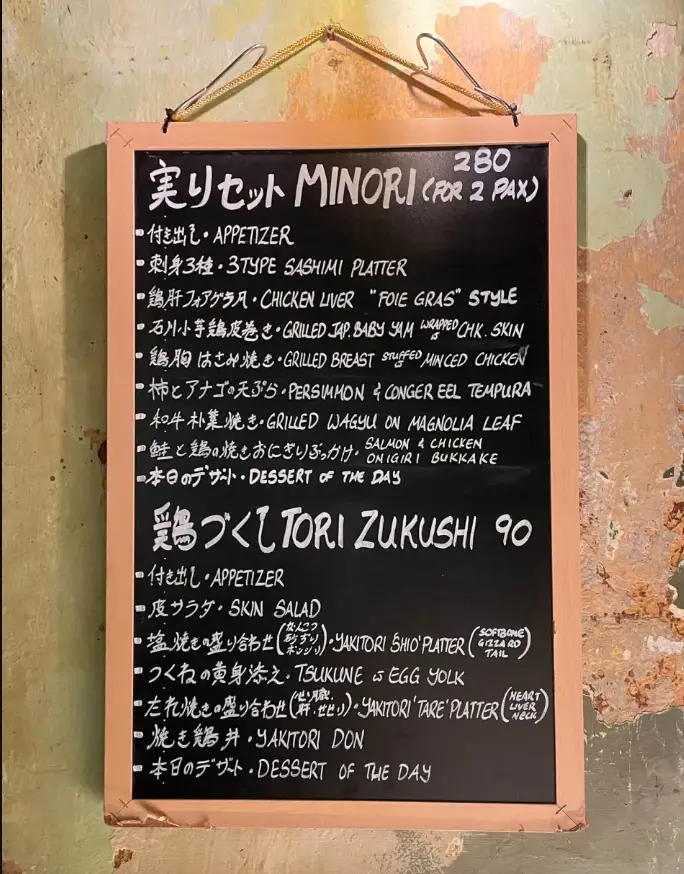 280
実りセット MINORI (FOR 2 PAX)
付き出し・APPETIZER
刺身3種・3TYPE SASHIMI PLATTER
鶏肝フォアグラ風・CHICKEN LIVER "FOIE GRAS" STYLE
石川小芋鶏皮巻き・GRILLED JAP. BABY YAM WRAPPED IS CHK. SKIN
鶏胸はさみ焼き・GRILLED BREAST STUFFED IS MINCED CHICKEN
柿とアナゴの天ぷら・PERSIMMON & CONGER EEL TEMPURA
和牛朴葉焼き・GRILLED WAGYU ON MAGNOLIA LEAF
鮭と鶏の焼きおにぎりぶっかけ・SALMON & CHICKEN ONIGIRI BUKKAKE
本日のデザート・DESSERT OF THE DAY
鶏づくし TORI ZUKUSHI 90
付き出し・APPETIZER
皮サラダ・SKIN SALAD
塩焼きの盛り合わせ(なんこつ 砂ずり ボンジリ)・YAKITORI 'SHIO' PLATTER (SOFTBONE GIZZARD TAIL)
つくねの黄身添え・TSUKUNE EGG YOLK
たれ焼きの盛り合わせ(肝.せせり)・YAKITORI 'TARE' PLATTER (HEART LIVER NECK)
焼き鶏丼・YAKITORI DON
本日のデザート・DESSERT OF THE DAY